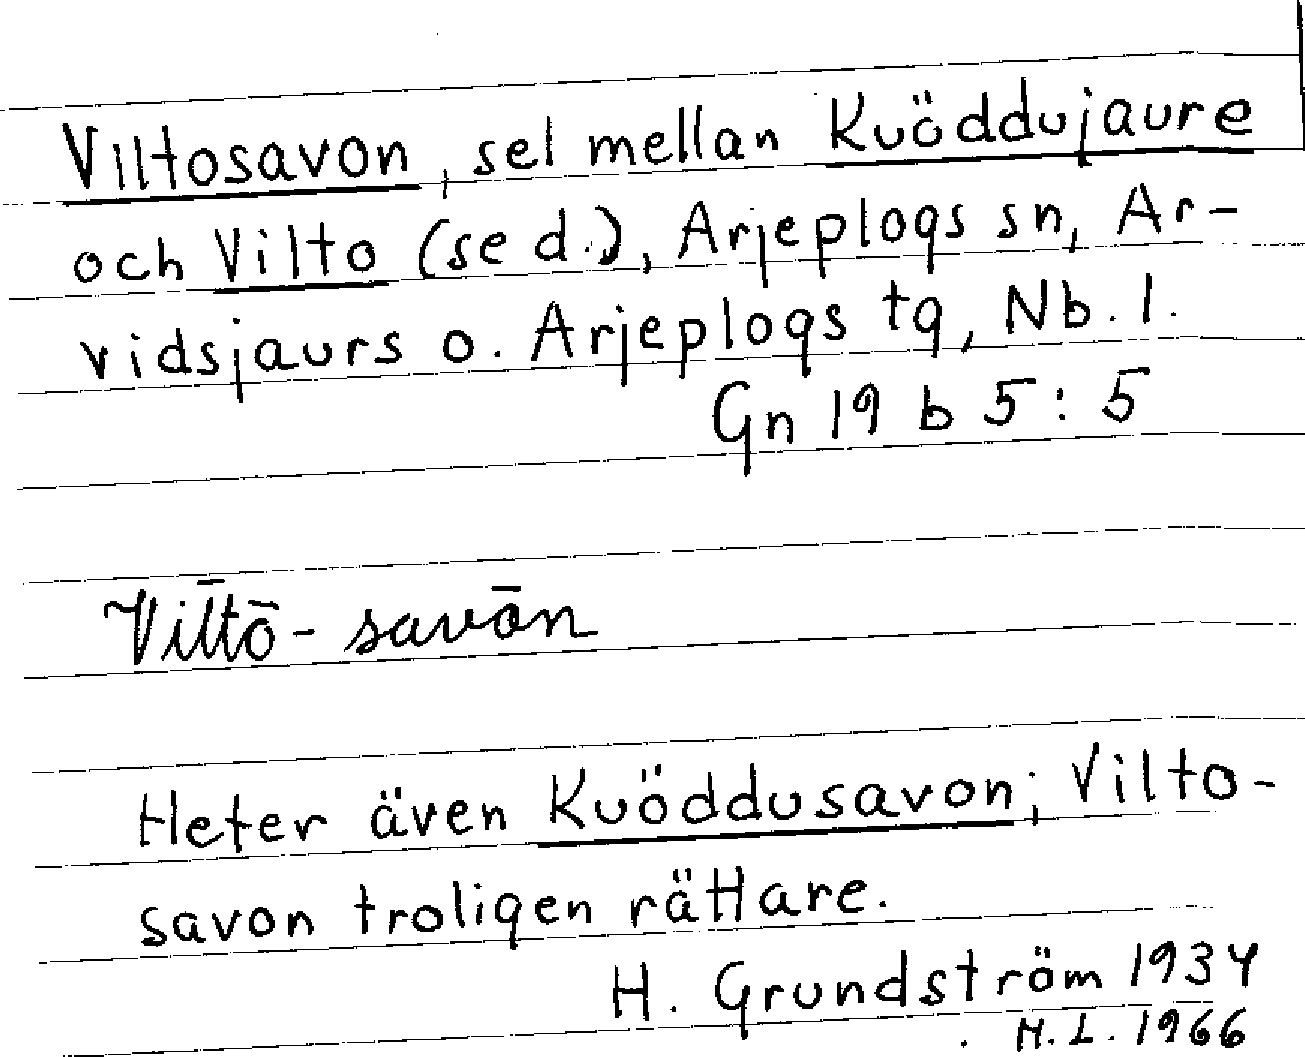 Viltosavon, sel mellan Kuöddujaure
och Vilto (se d.), Arjeplogs sn, Ar-
vidsjaurs o. Arjeplogs tg, Nb. l.
Gn 19 b 5 : 5
Viltō - savōn
Heter även Kuöddusavon; Vilto-
savon troligen rättare.
H. Grundström 1934
H. L. 1966